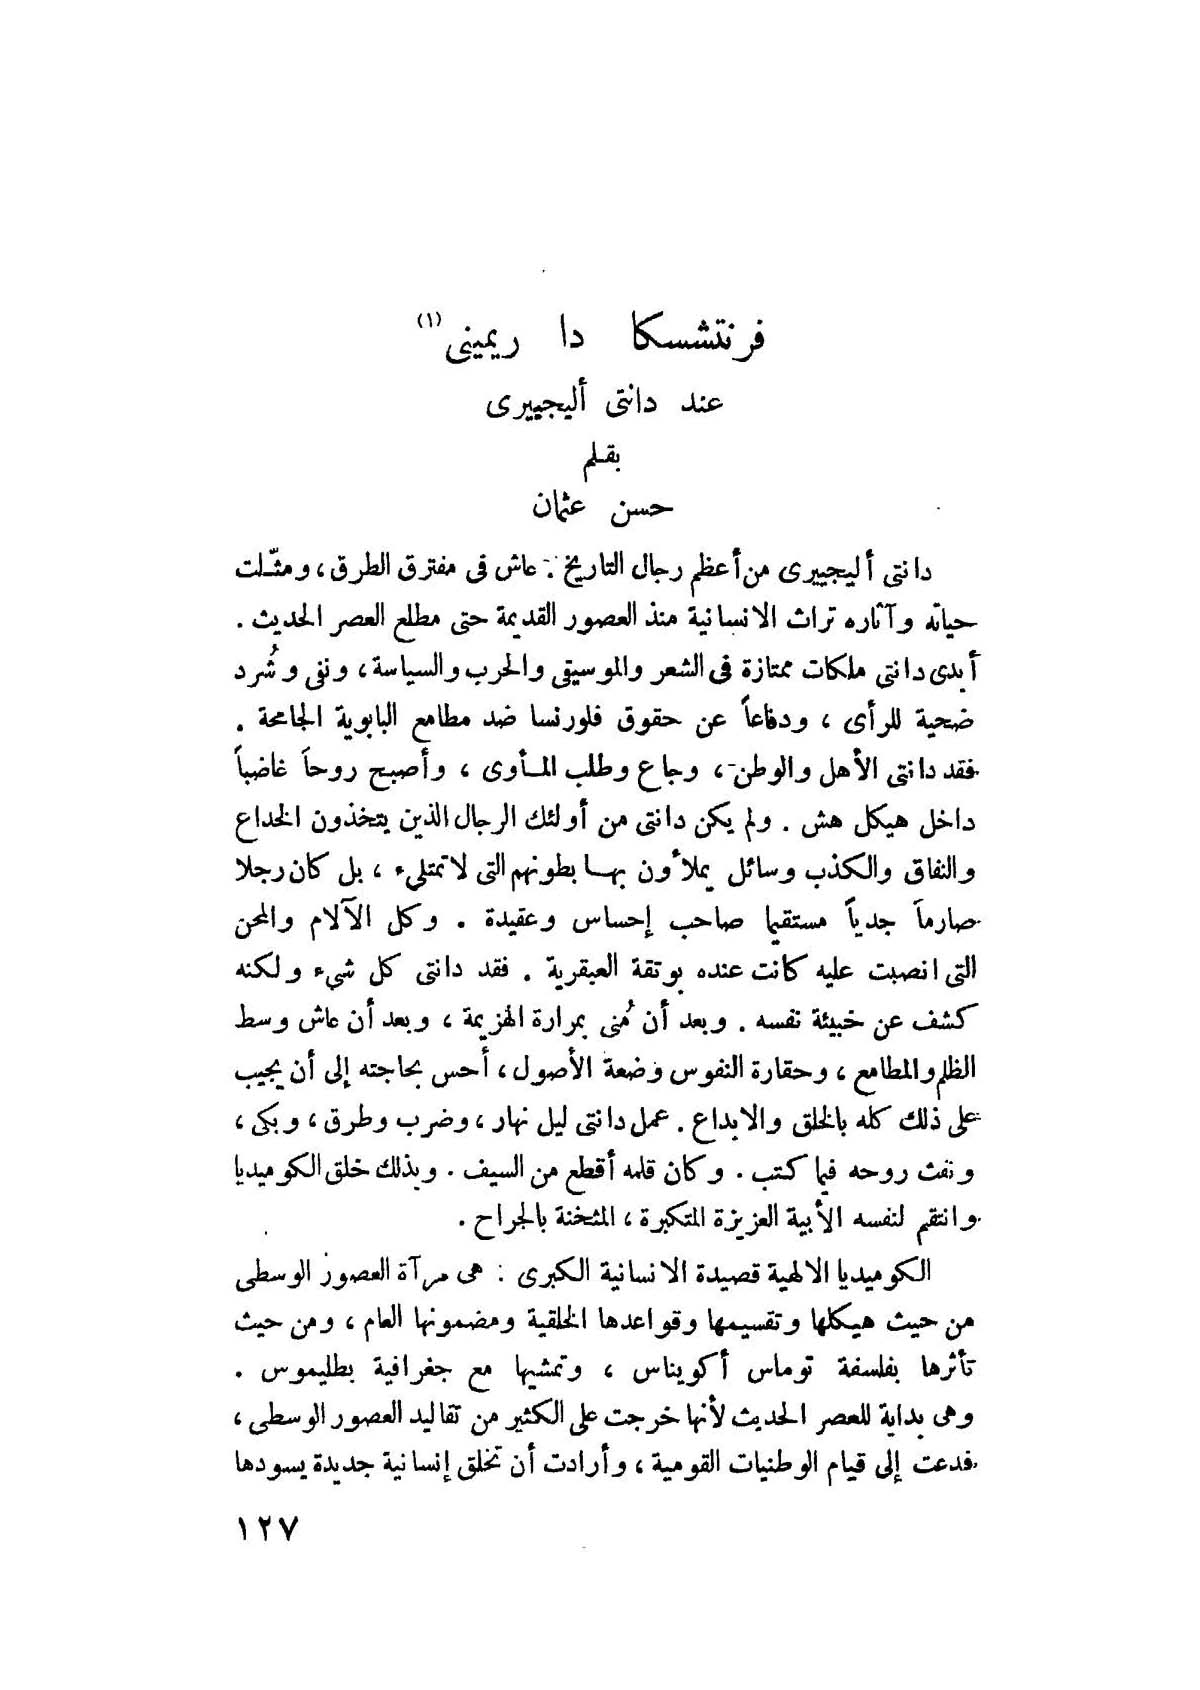 فرنتشسكا دا ريمينى (١)
عند دانتى أليجييرى
بقلم
حسن عثمان
دانتى أليجييرى من أعظم رجال التاريخ : عاش فى مفترق الطرق ، ومثّلت
حياته وآثاره تراث الانسانية منذ العصور القديمة حتى مطلع العصر الحديث .
أبدى دانتى ملكات ممتازة فى الشعر والموسيقى والحرب والسياسة ، ونفى وشُرد
ضحية للرأى ، ودفاعاً عن حقوق فلورنسا ضد مطامع البابوية الجامحة .
فقد دانتى الأهل والوطن ، وجاع وطلب المأوى ، وأصبح روحاً غاضباً
داخل هيكل هش . ولم يكن دانتى من أولئك الرجال الذين يتخذون الخداع
والنفاق والكذب وسائل يملأون بها بطونهم التى لا تمتلىء ، بل كان رجلا
صارماً جدياً مستقيما صاحب إحساس وعقيدة . وكل الآلام والمحن
التى انصبت عليه كانت عنده بوتقة العبقرية . فقد دانتى كل شىء ولكنه
كشف عن خبيئة نفسه . وبعد أن مُنى بمرارة الهزيمة ، وبعد أن عاش وسط
الظلم والمطامع ، وحقارة النفوس وضعة الأصول ، أحس بحاجته إلى أن يجيب
على ذلك كله بالخلق والابداع . عمل دانتى ليل نهار ، وضرب وطرق ، وبكى ،
ونفث روحه فيما كتب . وكان قلمه أقطع من السيف . وبذلك خلق الكوميديا
وانتقم لنفسه الأبية العزيزة المتكبرة ، المثخنة بالجراح .
الكوميديا الالهية قصيدة الانسانية الكبرى : هى مرآة العصور الوسطى
من حيث هيكلها وتقسيمها وقواعدها الخلقية ومضمونها العام ، ومن حيث
تأثرها بفلسفة توماس أكويناس ، وتمشيها مع جغرافية بطليموس .
وهى بداية للعصر الحديث لأنها خرجت على الكثير من تقاليد العصور الوسطى ،
فدعت إلى قيام الوطنيات القومية ، وأرادت أن تخلق إنسانية جديدة يسودها
١٢٧